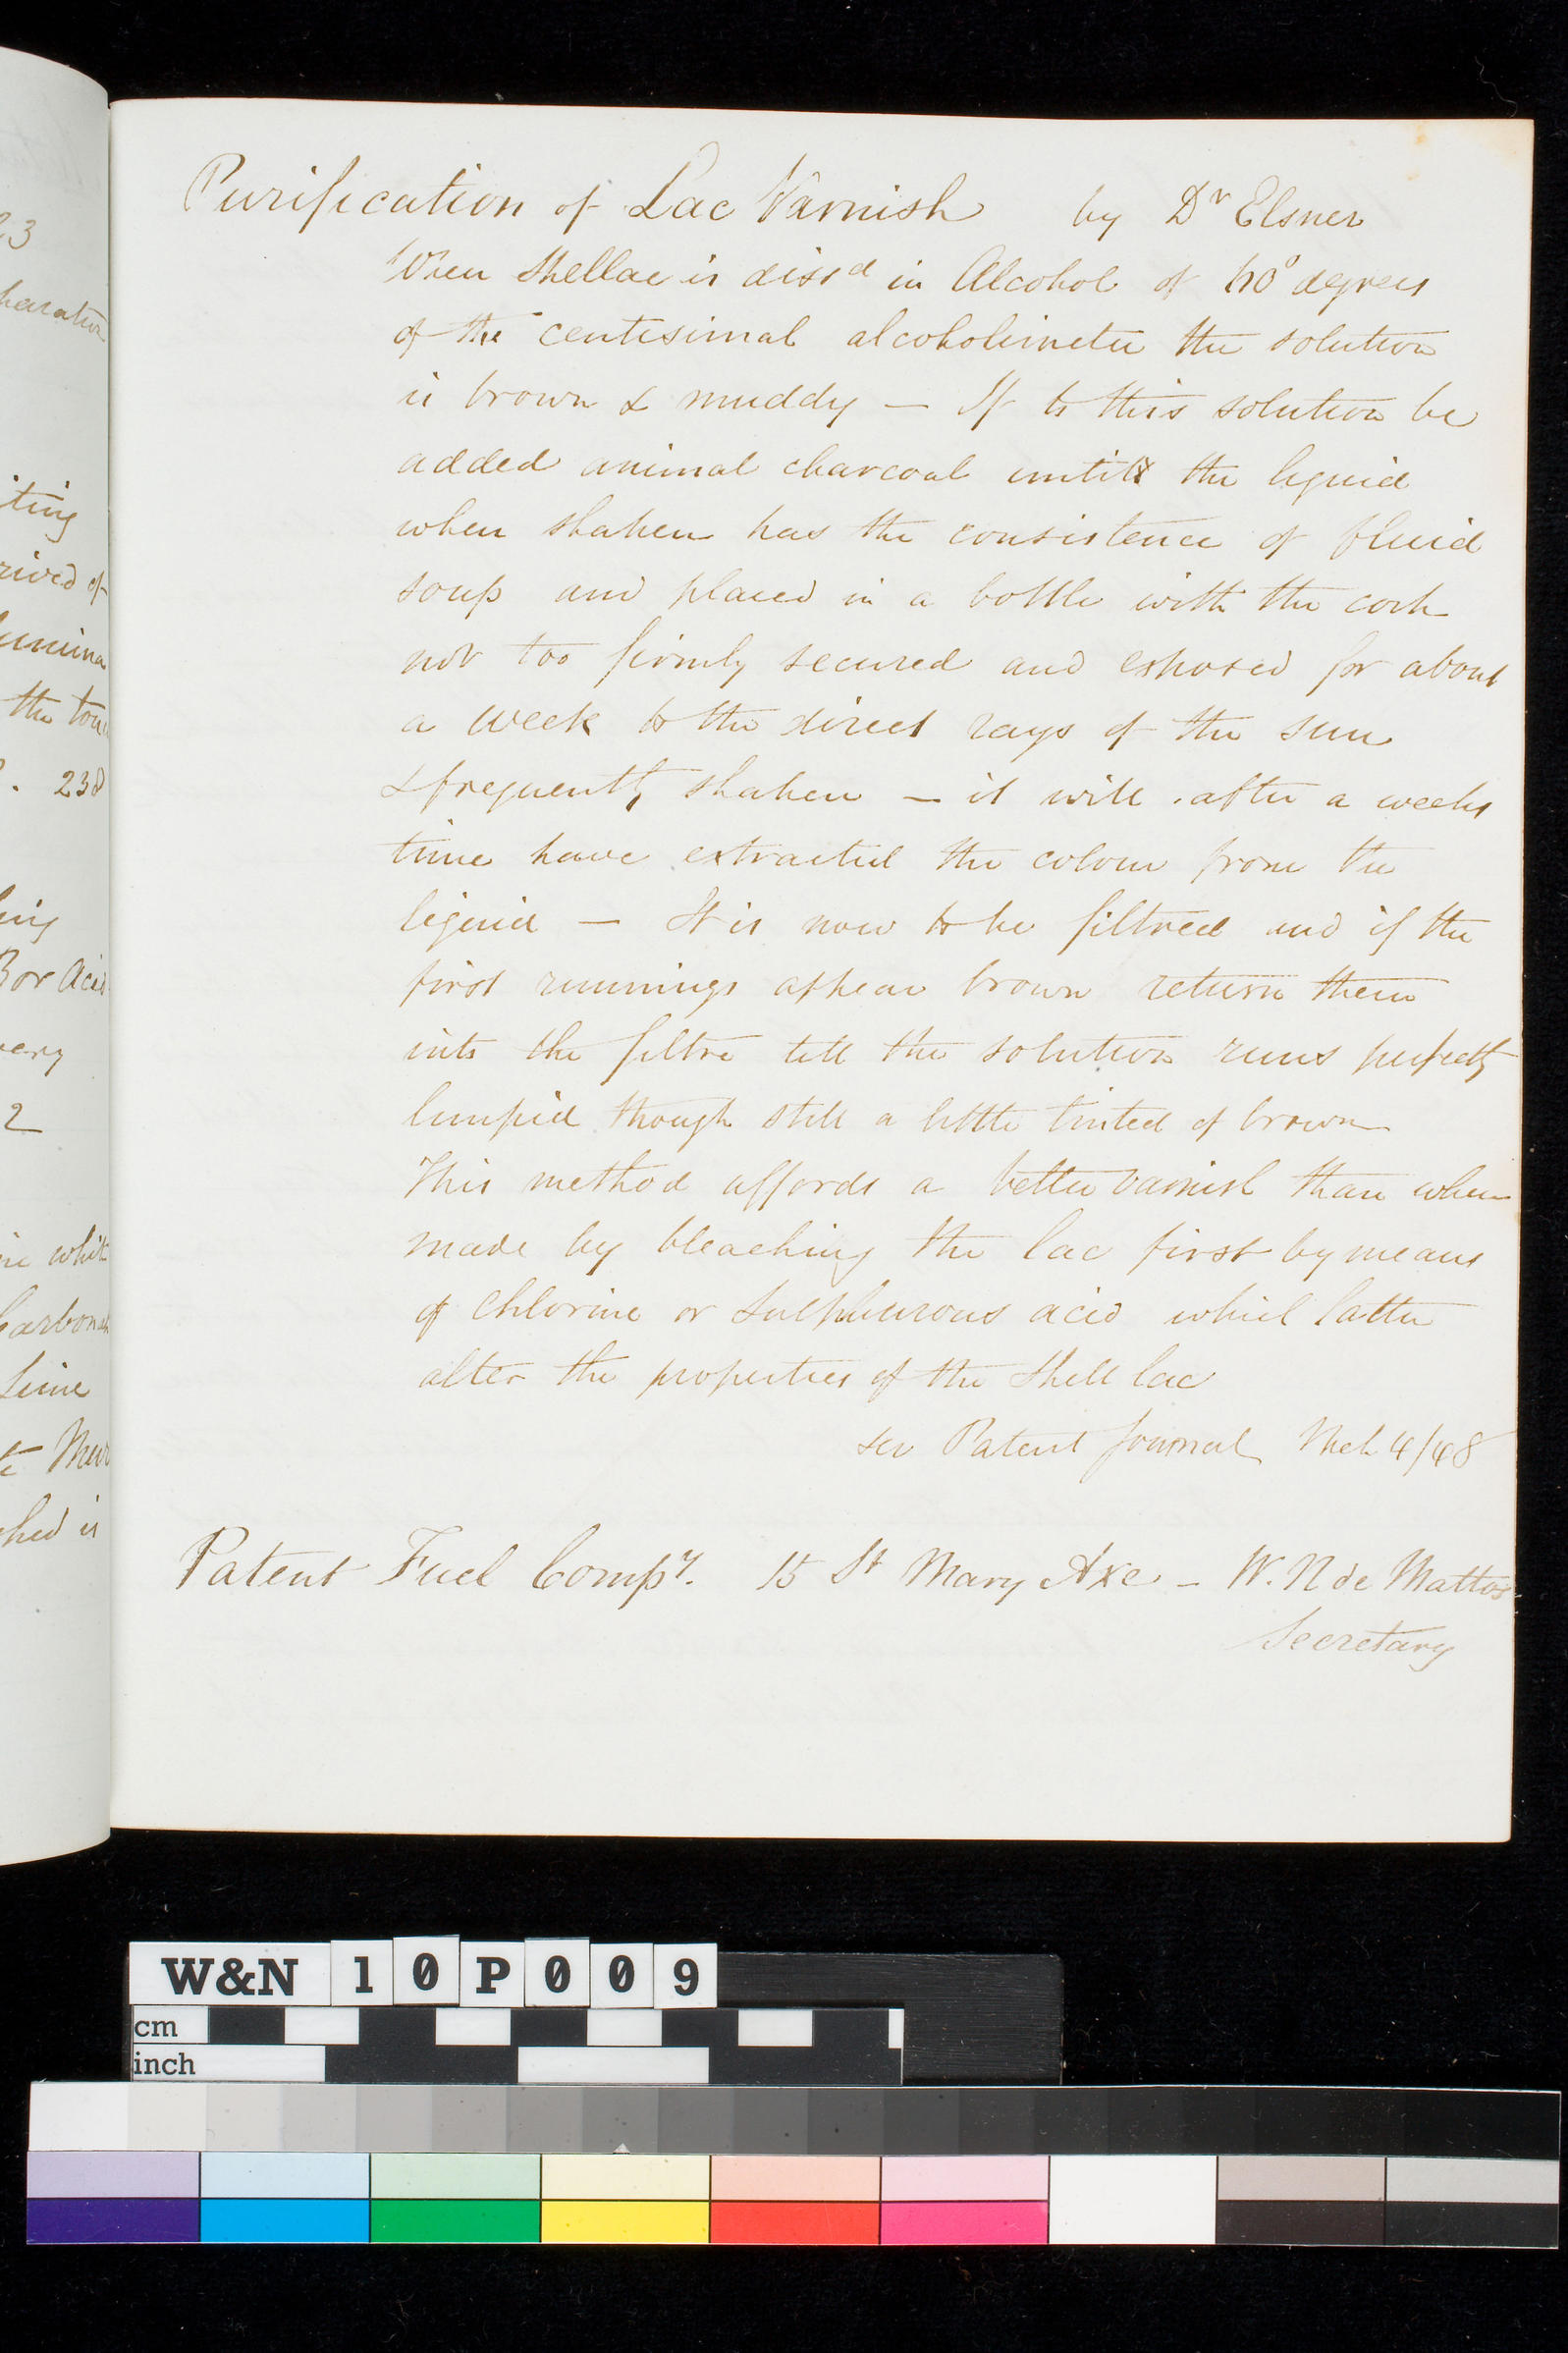 Purification of Lac Varnish by Dr Elsner
When Shellac is dissd in Alcohol of degrees
of the centesimal alcoholimeter the solution
is brown & muddy — If to this solution be
added animal charcoal until the liquid
when shaken has the consistence of fluid
soup and placed in a bottle with the cork
not too firmly secured and exposed for about
a week to the direct rays of the sun
& frequently shaken — it will after a weeks
time have extracted the colour from the
liquid — It is now to be filtred and if the
first runnings appear brown return them
into the filtre till the solution runs perfectly
limpid though still a little tinted of brown
This method affords a better varnish than when
made by bleaching the lac first by means
of Chlorine or Sulphurous acid which latter
alter the properties of the Shell lac
see Patent Journal Mch 4/48
Patent Fuel Compy. 15 St Mary Axe – W. N de Mattos
Secretary
23
iting
rived of
the
. 238
Bor Acid
very
2
Lime
W&N 10P009
cm
inch